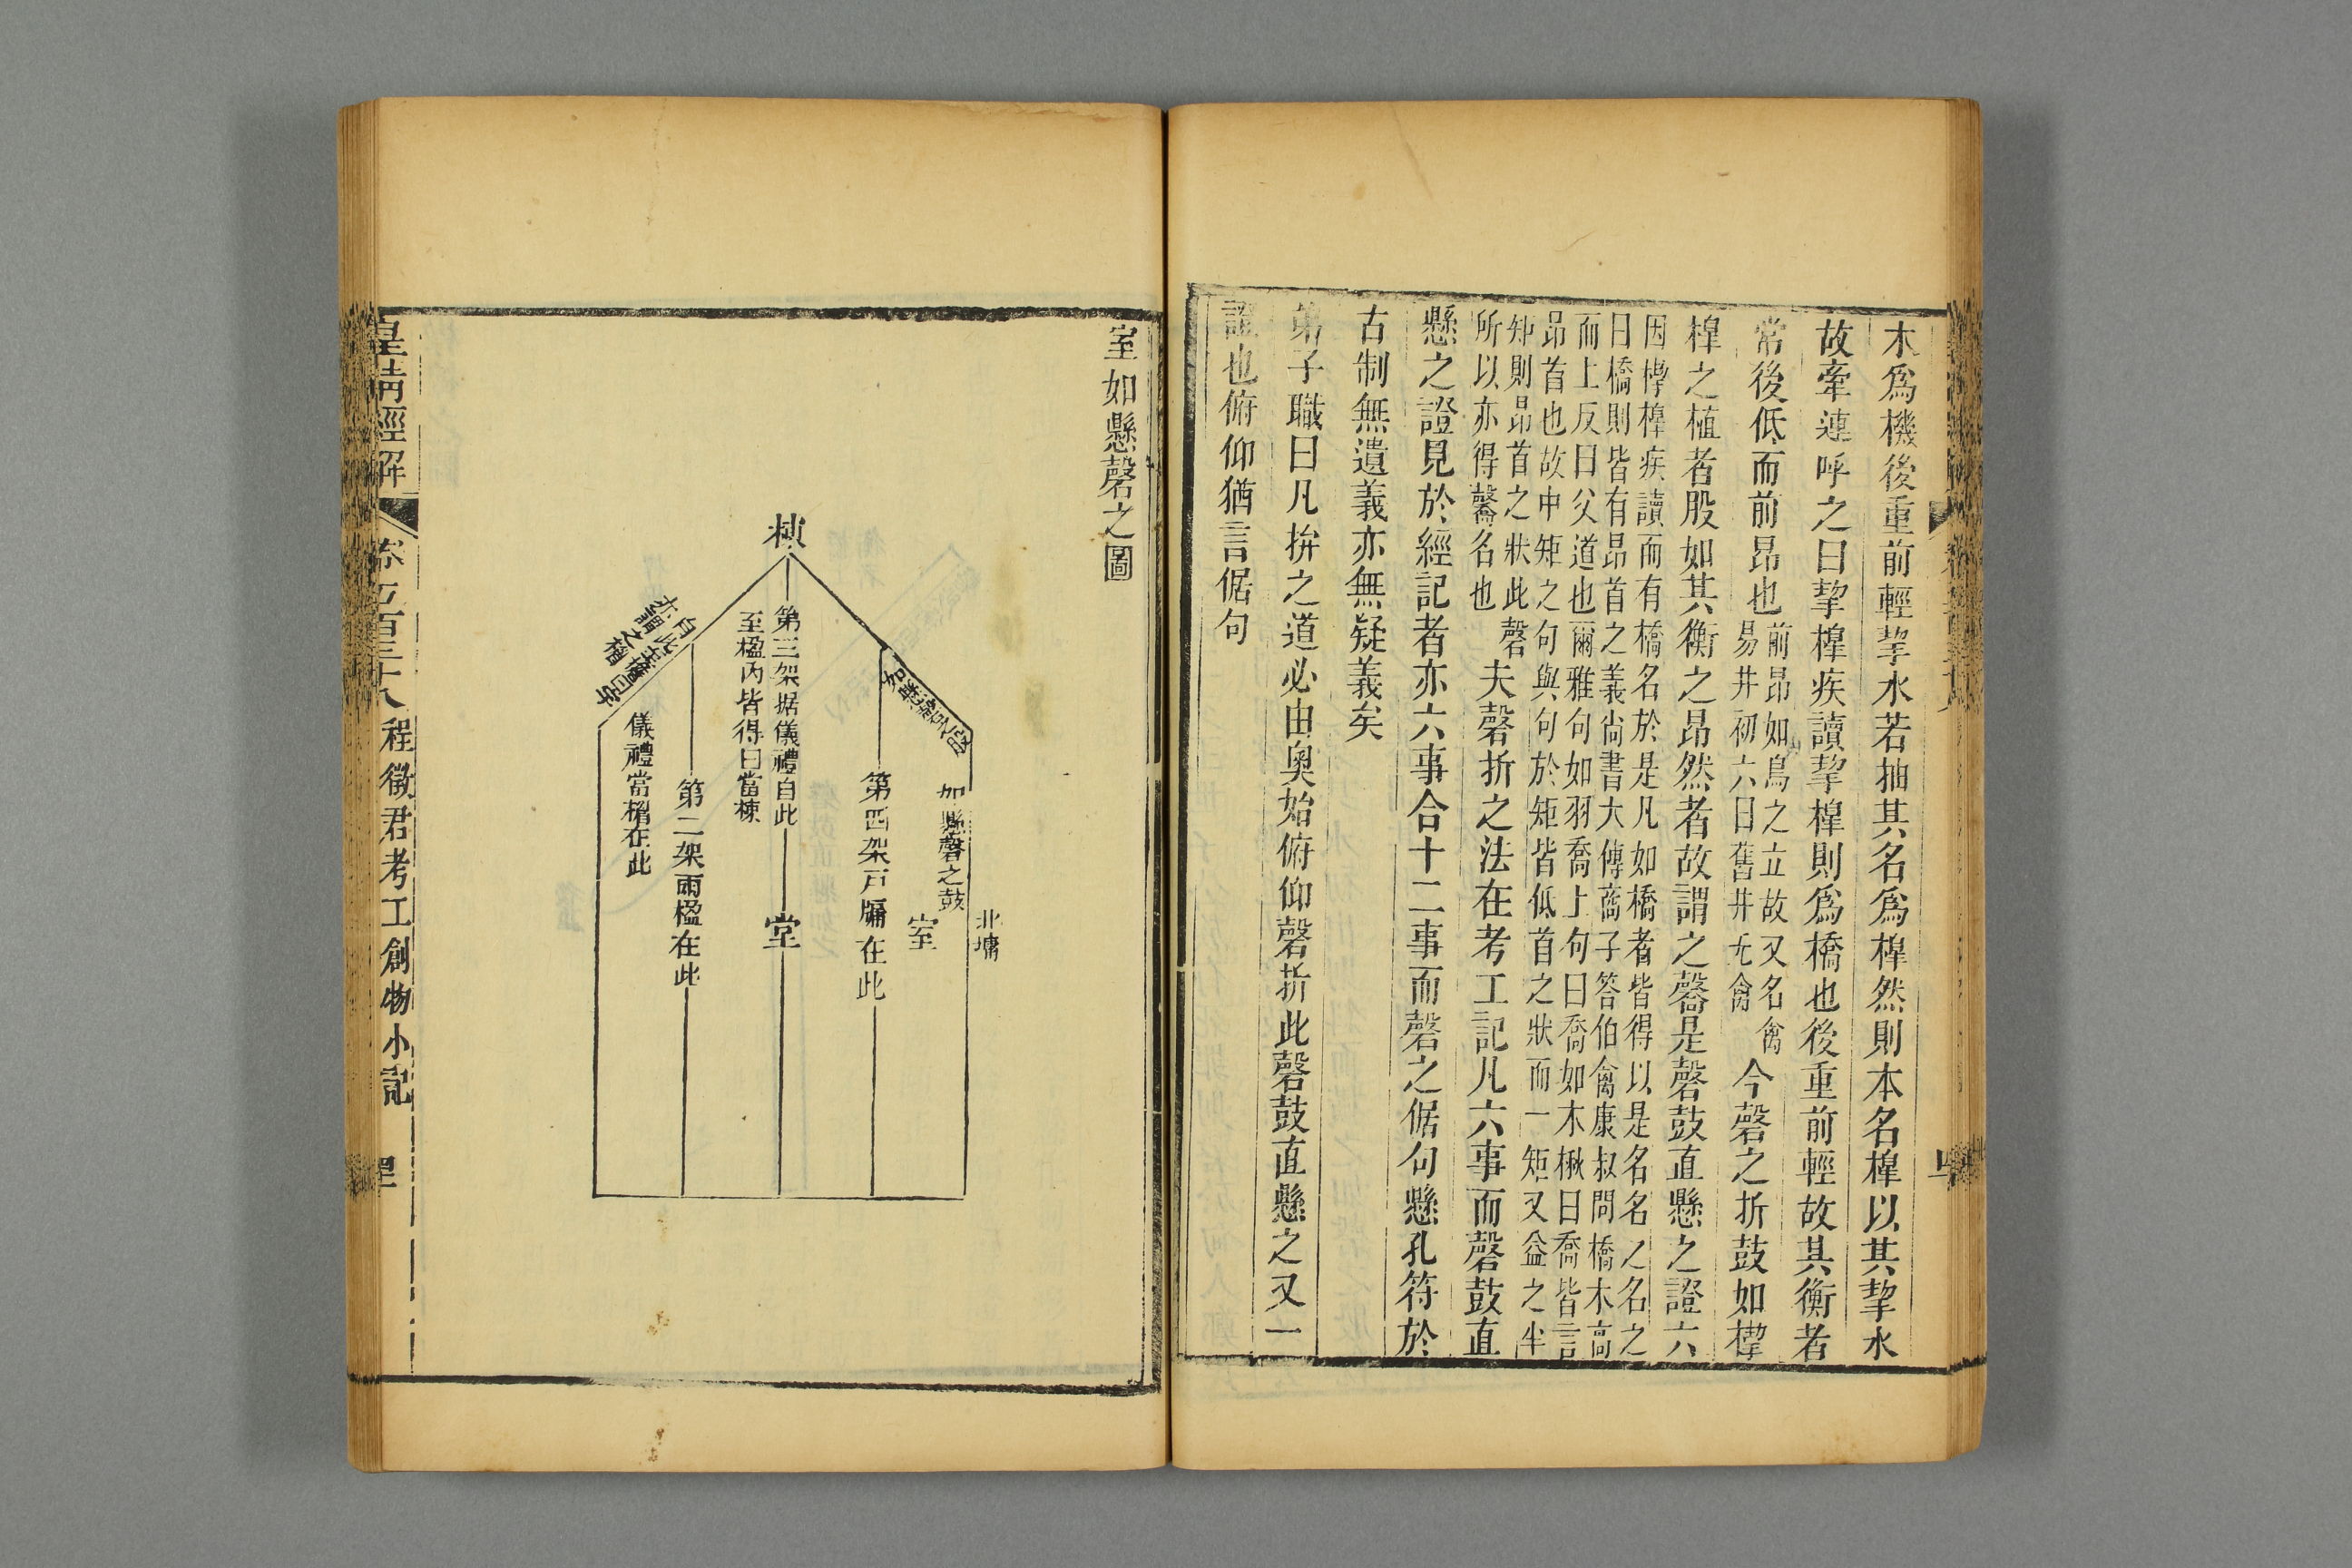 木爲機後重前輕挈水若抽其名爲槹然則本名槹以其挈水
故牽連呼之曰挈槹疾讀挈槹則爲橋也後重前輕故其衡者
常後低而前昂也
前昂如鳥之立故又名禽
易井初六曰舊井无禽
今磬之折鼓如㮮
槹之植者股如其衡之昂然者故謂之毊是磬鼓直懸之證六
因㮮槹疾讀而有橋名於是凡如橋者皆得以是名名之名之
曰橋則皆有昂首之義尙書大傳蕎子答伯禽康叔問橋木高
而上反曰父道也爾雅句如羽喬上句曰喬如木楸曰喬皆言
昂首也故中矩之句與句於矩皆低首之狀而一矩又益之半
矩則昂首之狀此磬
所以亦得毊名也
夫磬折之法在考工記凡六事而磬鼓直
懸之證見於經記者亦六事合十二事而磬之倨句懸孔符於
古制無遺義亦無疑義矣
弟子職曰凡拚之道必由奧始俯仰磬折此磬鼓直懸之又一
證也俯仰猶言倨句
室如懸磬之圖
北墉
如懸磬之鼓
室
第四架戸牖在此
棟
第三架据儀禮自此
至楹内皆得曰當棟
堂
第二架兩楹在此
儀禮當楣在此
亦謂之楣
皇淸經解
卷五百三十八
程徵君考工創物小記